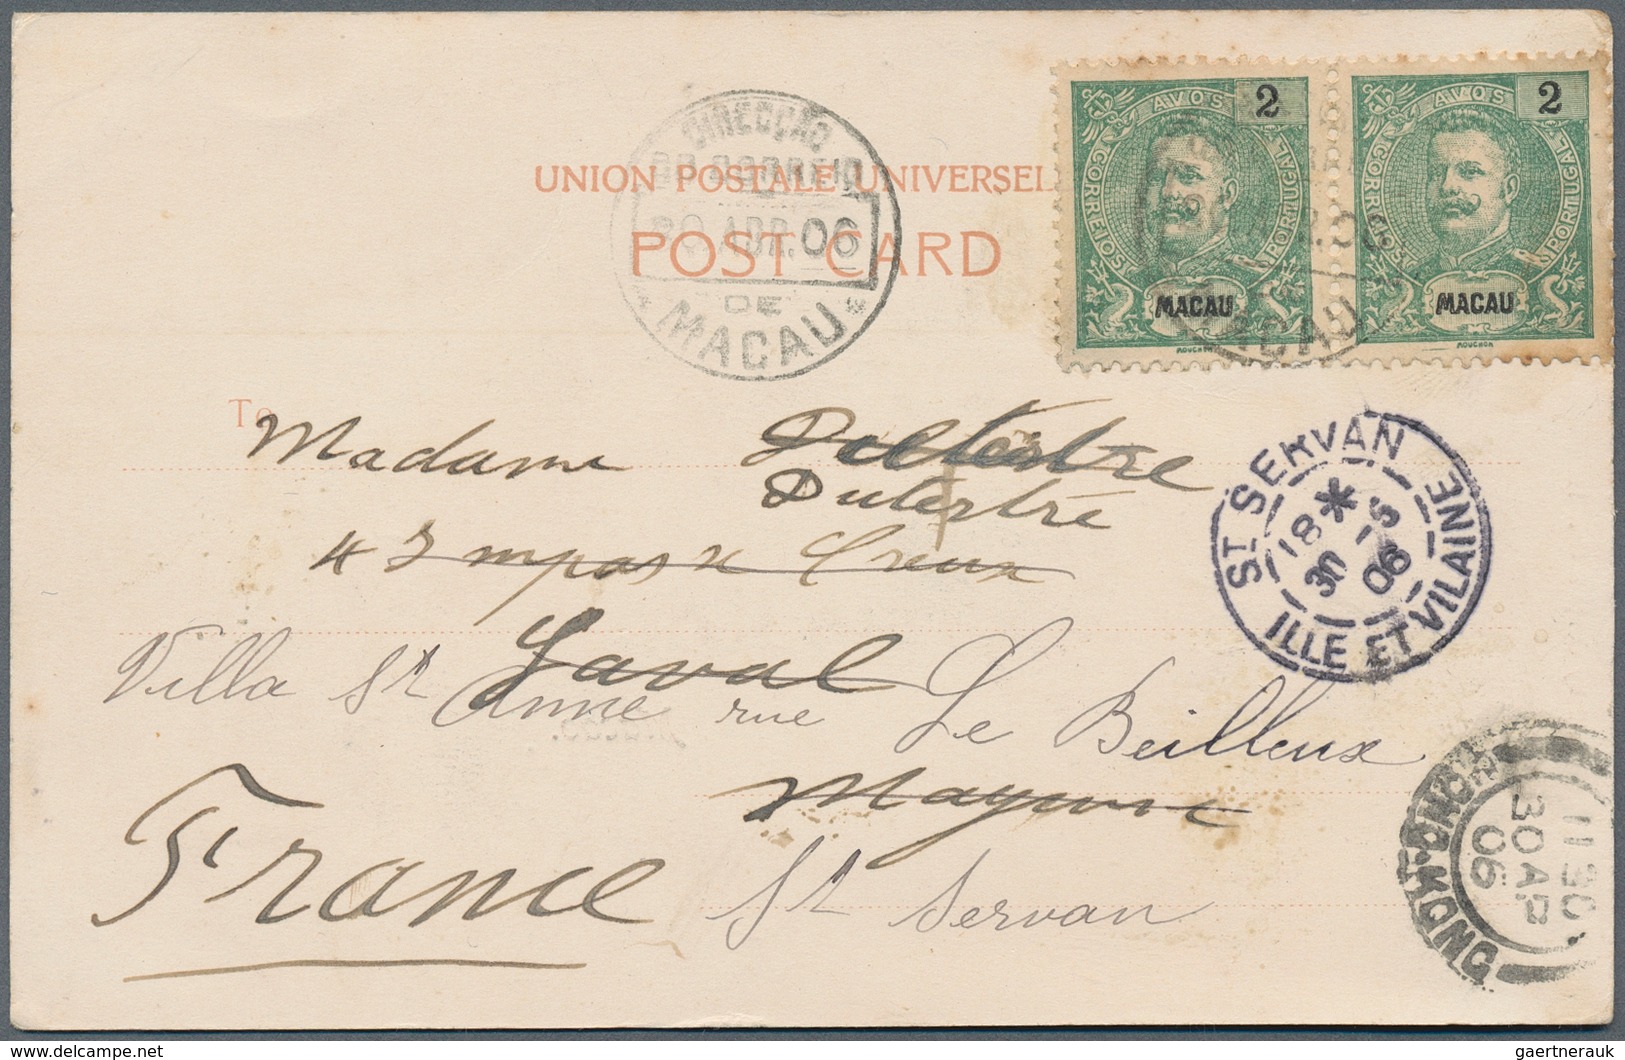 UNION POSTALE UNIVERSEL
POST CARD
DIRECÇÃO
DO CORREIO
30 ABR. 06
DE
MACAU
AVOS 2
CORREIOS
PORTUGAL
MACAU
MOUCHON
AVOS 2
CORREIOS
PORTUGAL
MACAU
MOUCHON
To
Madame Dutertre
Dutertre
4 Impasse Creux
Laval
Villa St Anne rue Le Beilleux
Mayenne
France
St Servan
ST SERVAN
18 *
30 -5
06
ILLE ET VILAINE
HONG KONG
11 30
30 AP
06
gaertnerauk